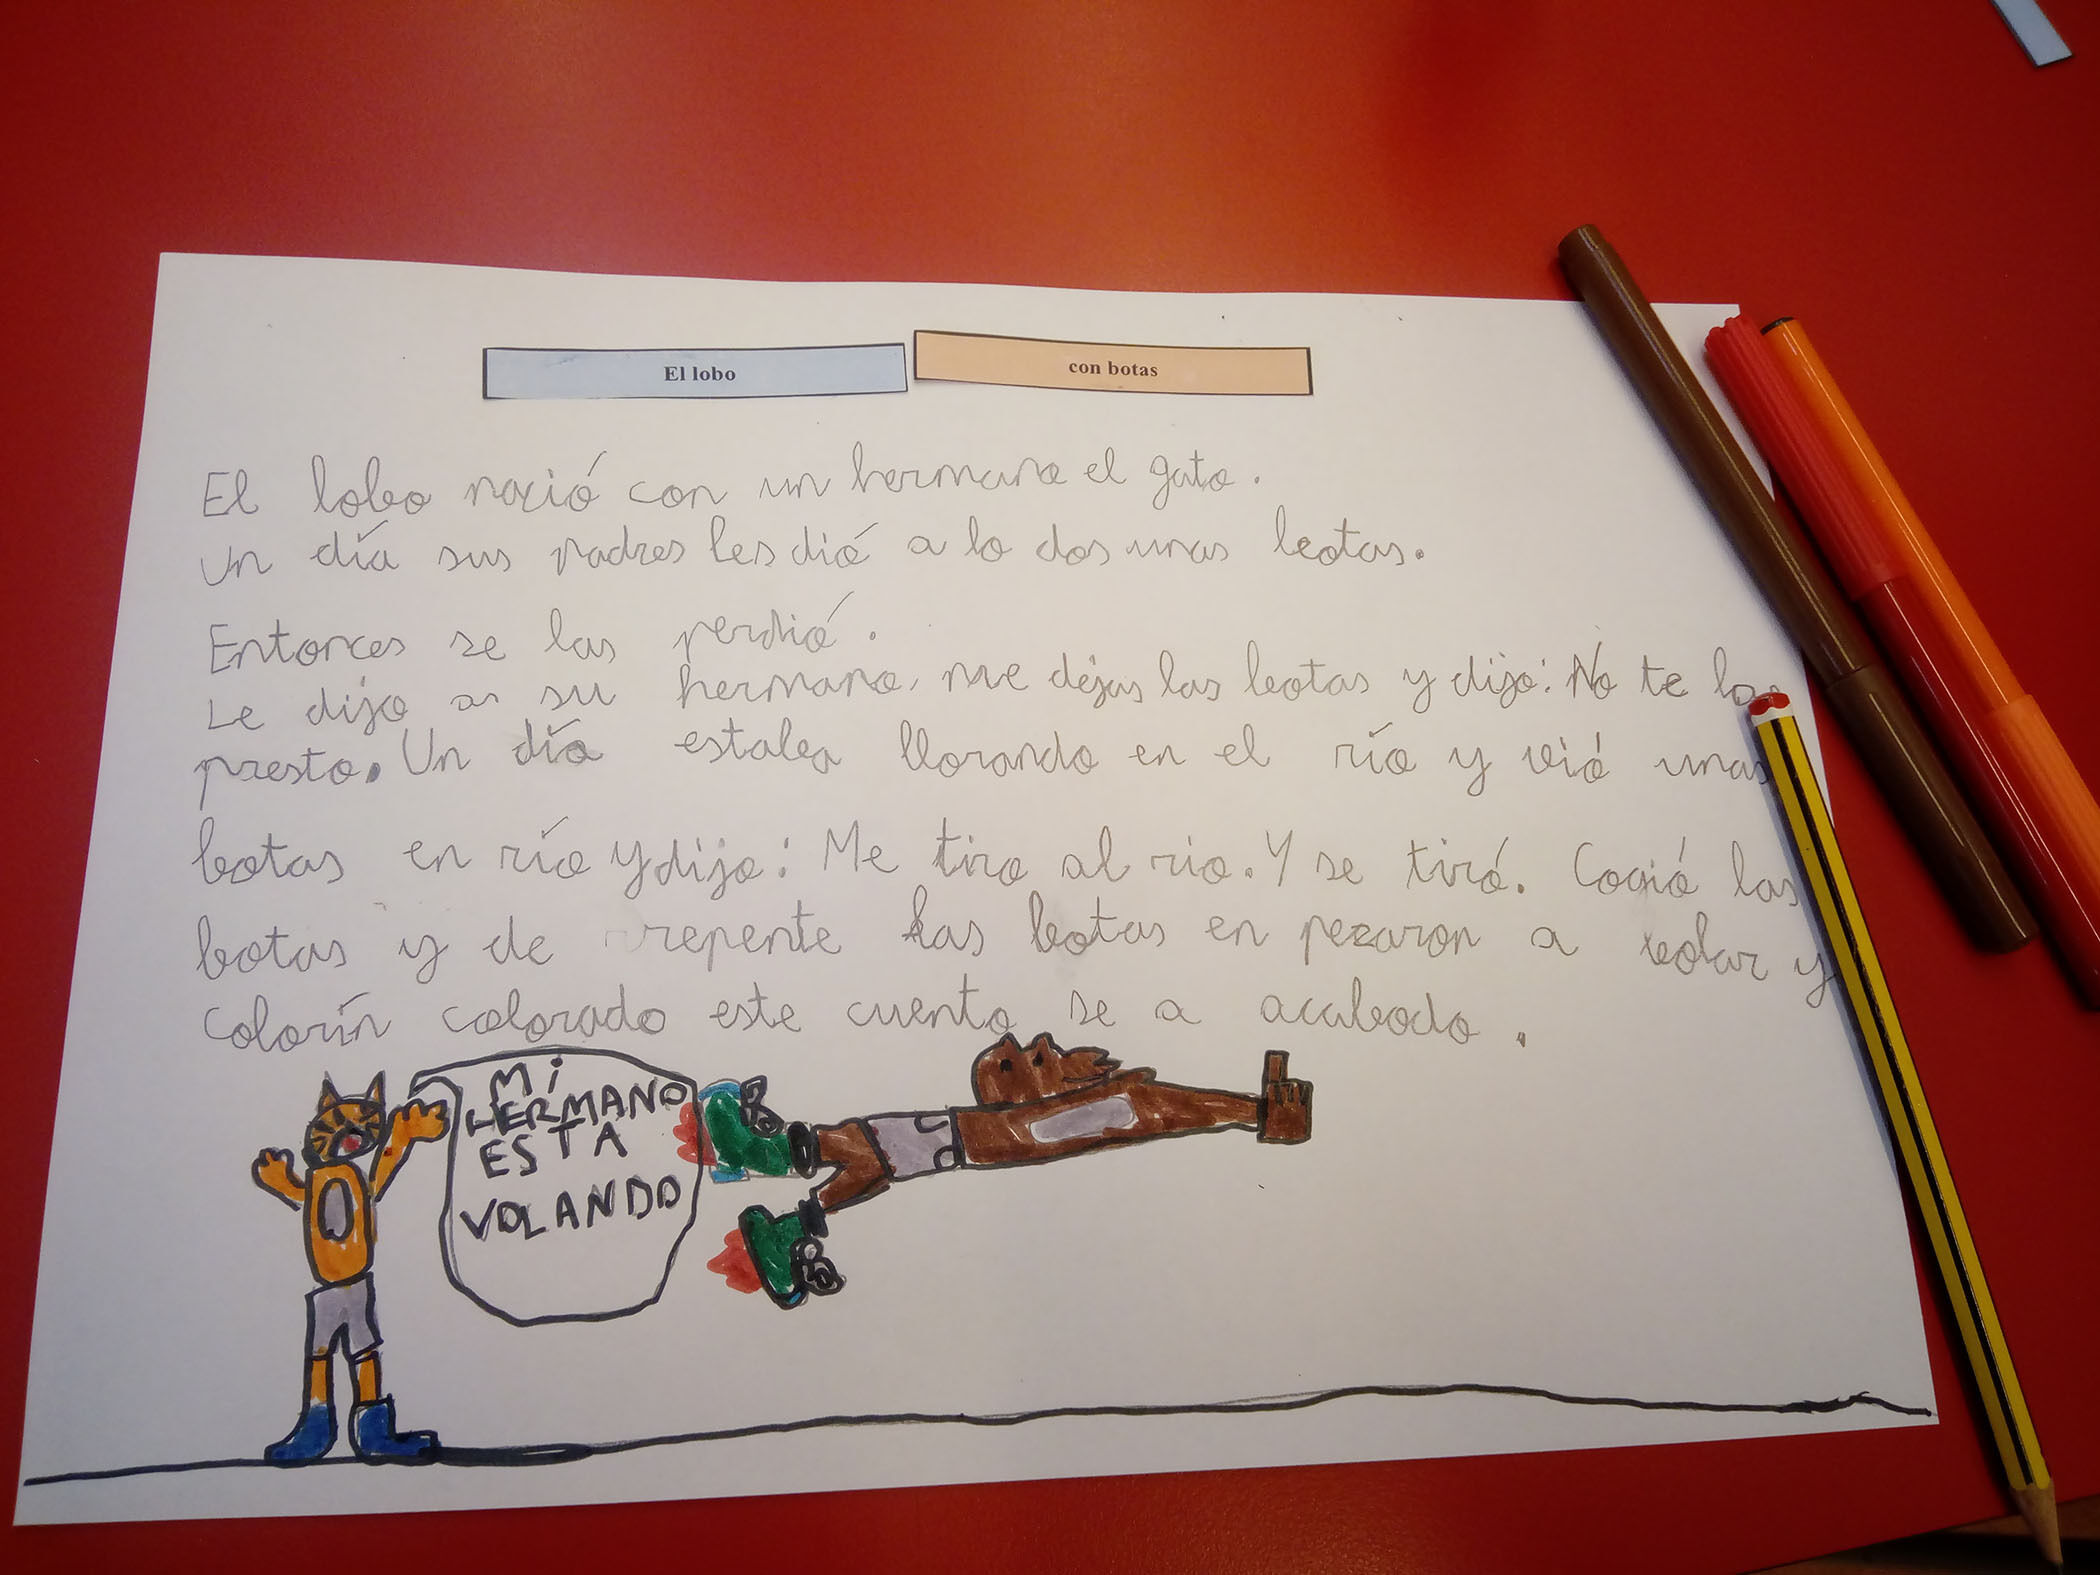 El lobo con botas
El lobo nació con un hermano el gato.
Un día sus padres les dió a lo dos unas botas.
Entonces se las perdió.
Le dijo a su hermano, me dejas las botas y dijo: No te las
presto. Un día estaba llorando en el río y vió unas
botas en río y dijo: Me tiro al rio. Y se tiró. Cogió las
botas y de repente las botas en pezaron a bolar y
colorín colorado este cuento se a acabado.
MI
HERMANO
ESTA
VOLANDO